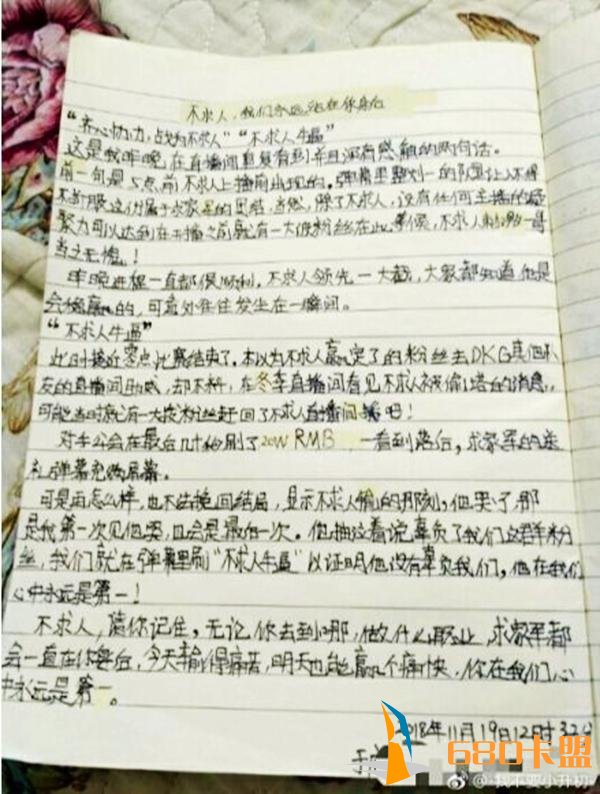 不求人,我们永远站在你身后
“齐心协力,战为不求人”“不求人牛逼”
这是我昨晚在直播间重复看到并且深有感触的两句话。
前一句是5点前不求人上播前出现的。弹幕里整划一的队型让人不得
不折服这份属于求家军的团结,当然,除了不求人,没有任何主播的凝
聚力可以达到在开播之前就有一大波粉丝在此等候,不求人一哥
当之无愧!
昨晚进程一直都很顺利,不求人领先一大截,大家都知道他是
会稳赢的,可意外往往发生在一瞬间。
“不求人牛逼”
此时接近零点比赛结束了。本以为不求人赢定了的粉丝去DKG其他不
友的直播间助威,却不料,在冬季直播间看见不求人被偷塔的消息,
可能当时就有一大波粉丝赶回了不求人直播间吧!
对手公会在最后几十秒刷了20W RMB 一看到落后,求家军的送
礼弹幕充购屏幕。
可是再怎么样,也不法挽回结局,显示不求人输的那刻,他哭了,那
是我第一次见他哭,且会是最后一次。他抽泣着说辜负了我们这群粉
丝,我们就在弹幕里刷“不求人牛逼”以证明他没有辜负我们,他在我们
心中永远是第一!
不求人,请你记住,无论你去到哪,做什么职业,求家军都
会一直在你身后,今天输得痛苦,明天也能赢个痛快,你在我们心
中永远是第一。
2018年11月19日12时32分
680卡盟
@-我不要小升初-